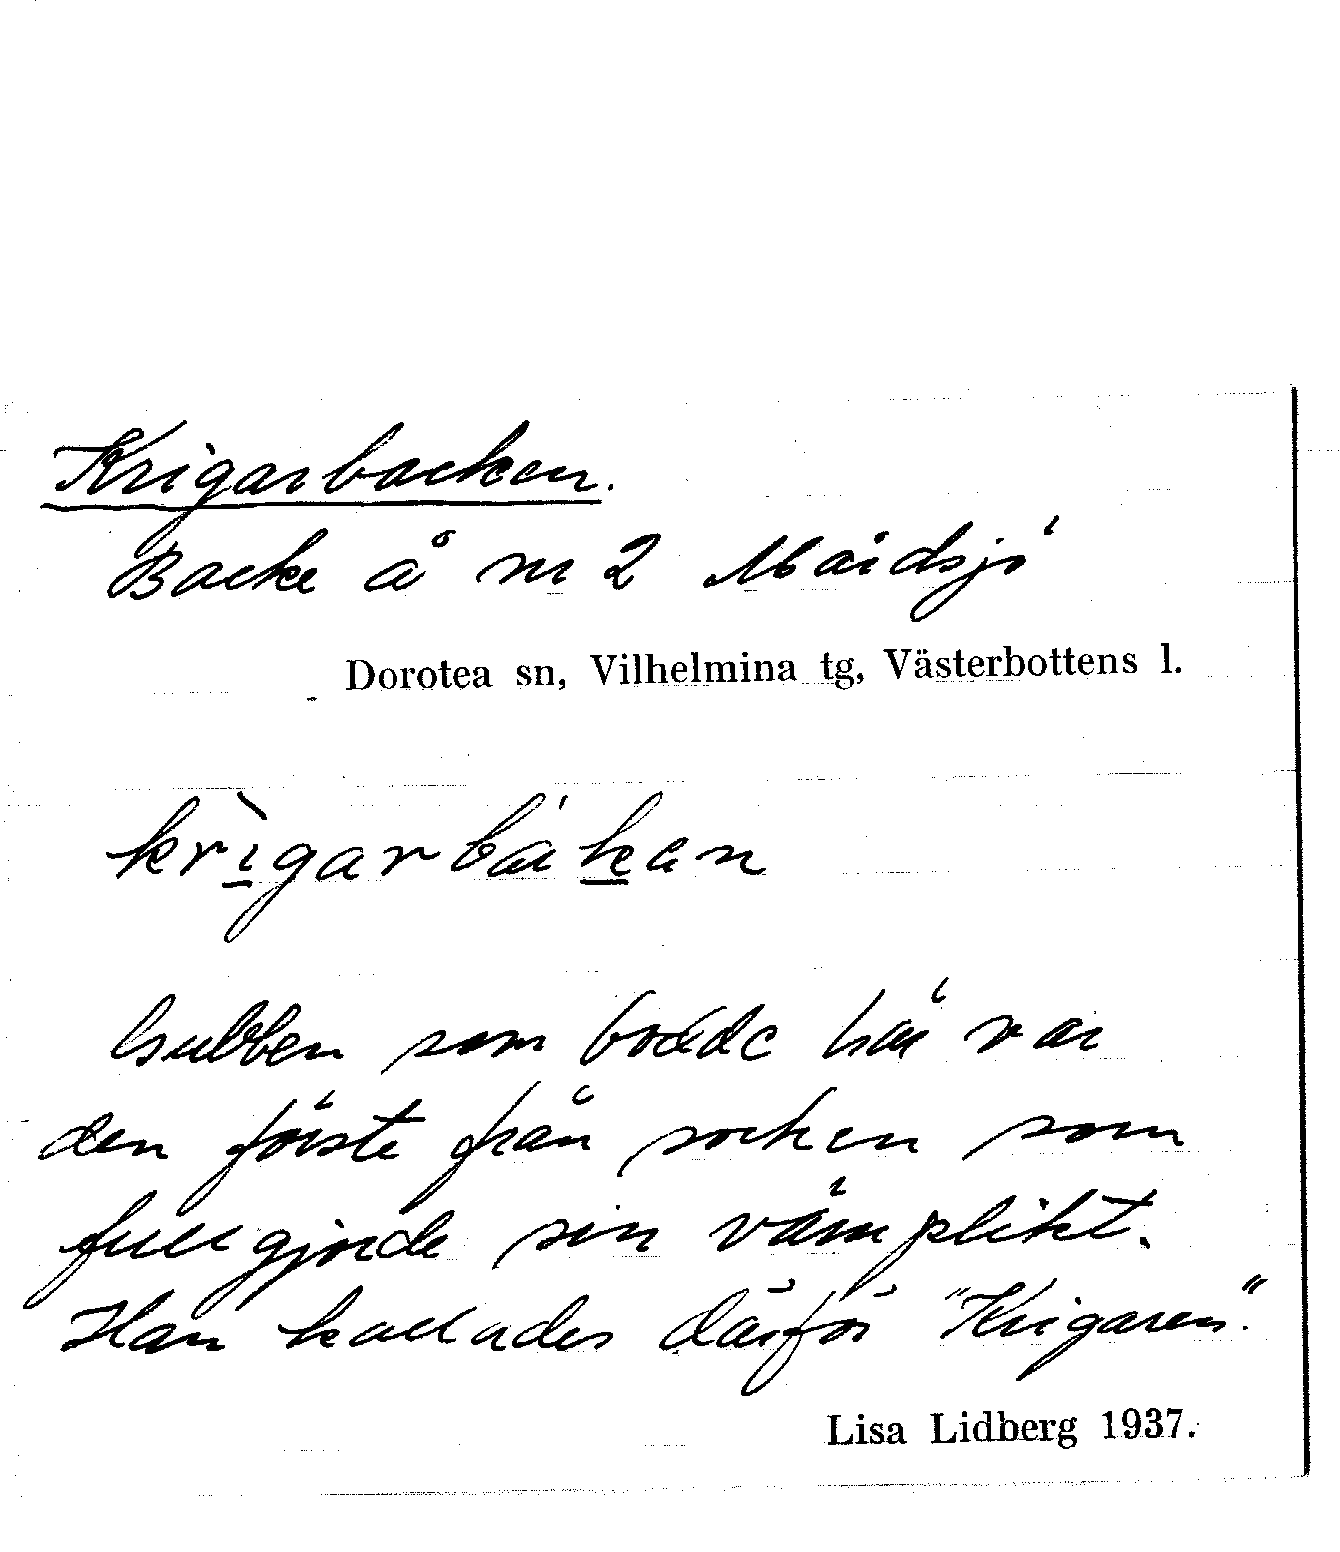 Krigarbacken.
Backe å nr 2 Mårdsjö
Dorotea sn, Vilhelmina tg, Västerbottens l.
krìgarbákan
Gubben som bodde här var
den förste från socken som
fullgjorde sin värnplikt.
Han kallades därför "Krigaren".
Lisa Lidberg 1937.